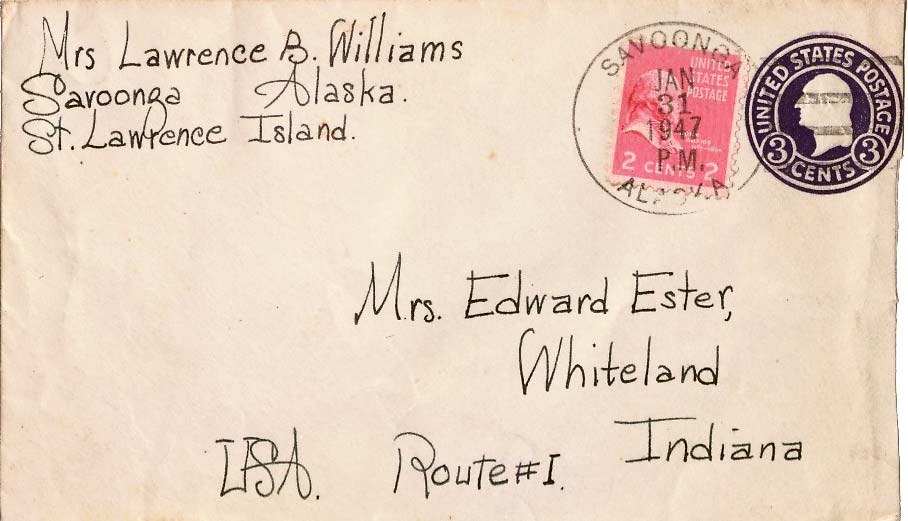 Mrs Lawrence B. Williams
Savoonga Alaska.
St. Lawrence Island.
SAVOONGA
JAN
31
1947
P.M.
ALASKA
UNITED
STATES
POSTAGE
2 CENTS 2
UNITED STATES POSTAGE
3 CENTS 3
Mrs. Edward Ester,
Whiteland
Indiana
USA. Route #1.